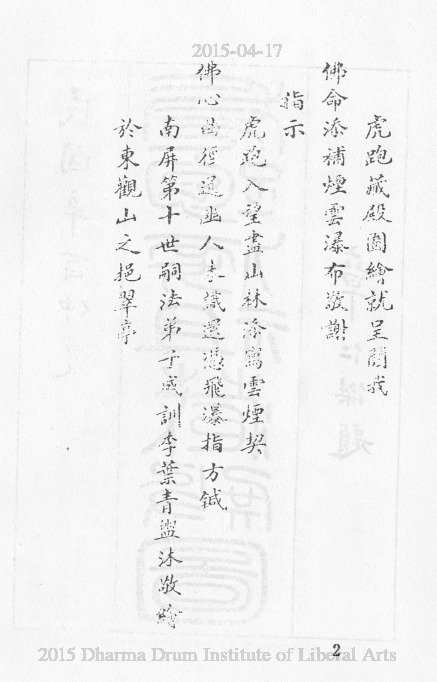 2015-04-17
虎跑藏殿圖繪就呈閱我
佛命添補煙雲瀑布敬謝
指示
虎跑入望盡山林添寫雲煙契
佛心曲徑通幽人未識還憑飛瀑指方鍼
南屏第十世嗣法弟子成訓李葉青盥沐敬繪
於東觀山之挹翠亭
2
2015 Dharma Drum Institute of Liberal Arts